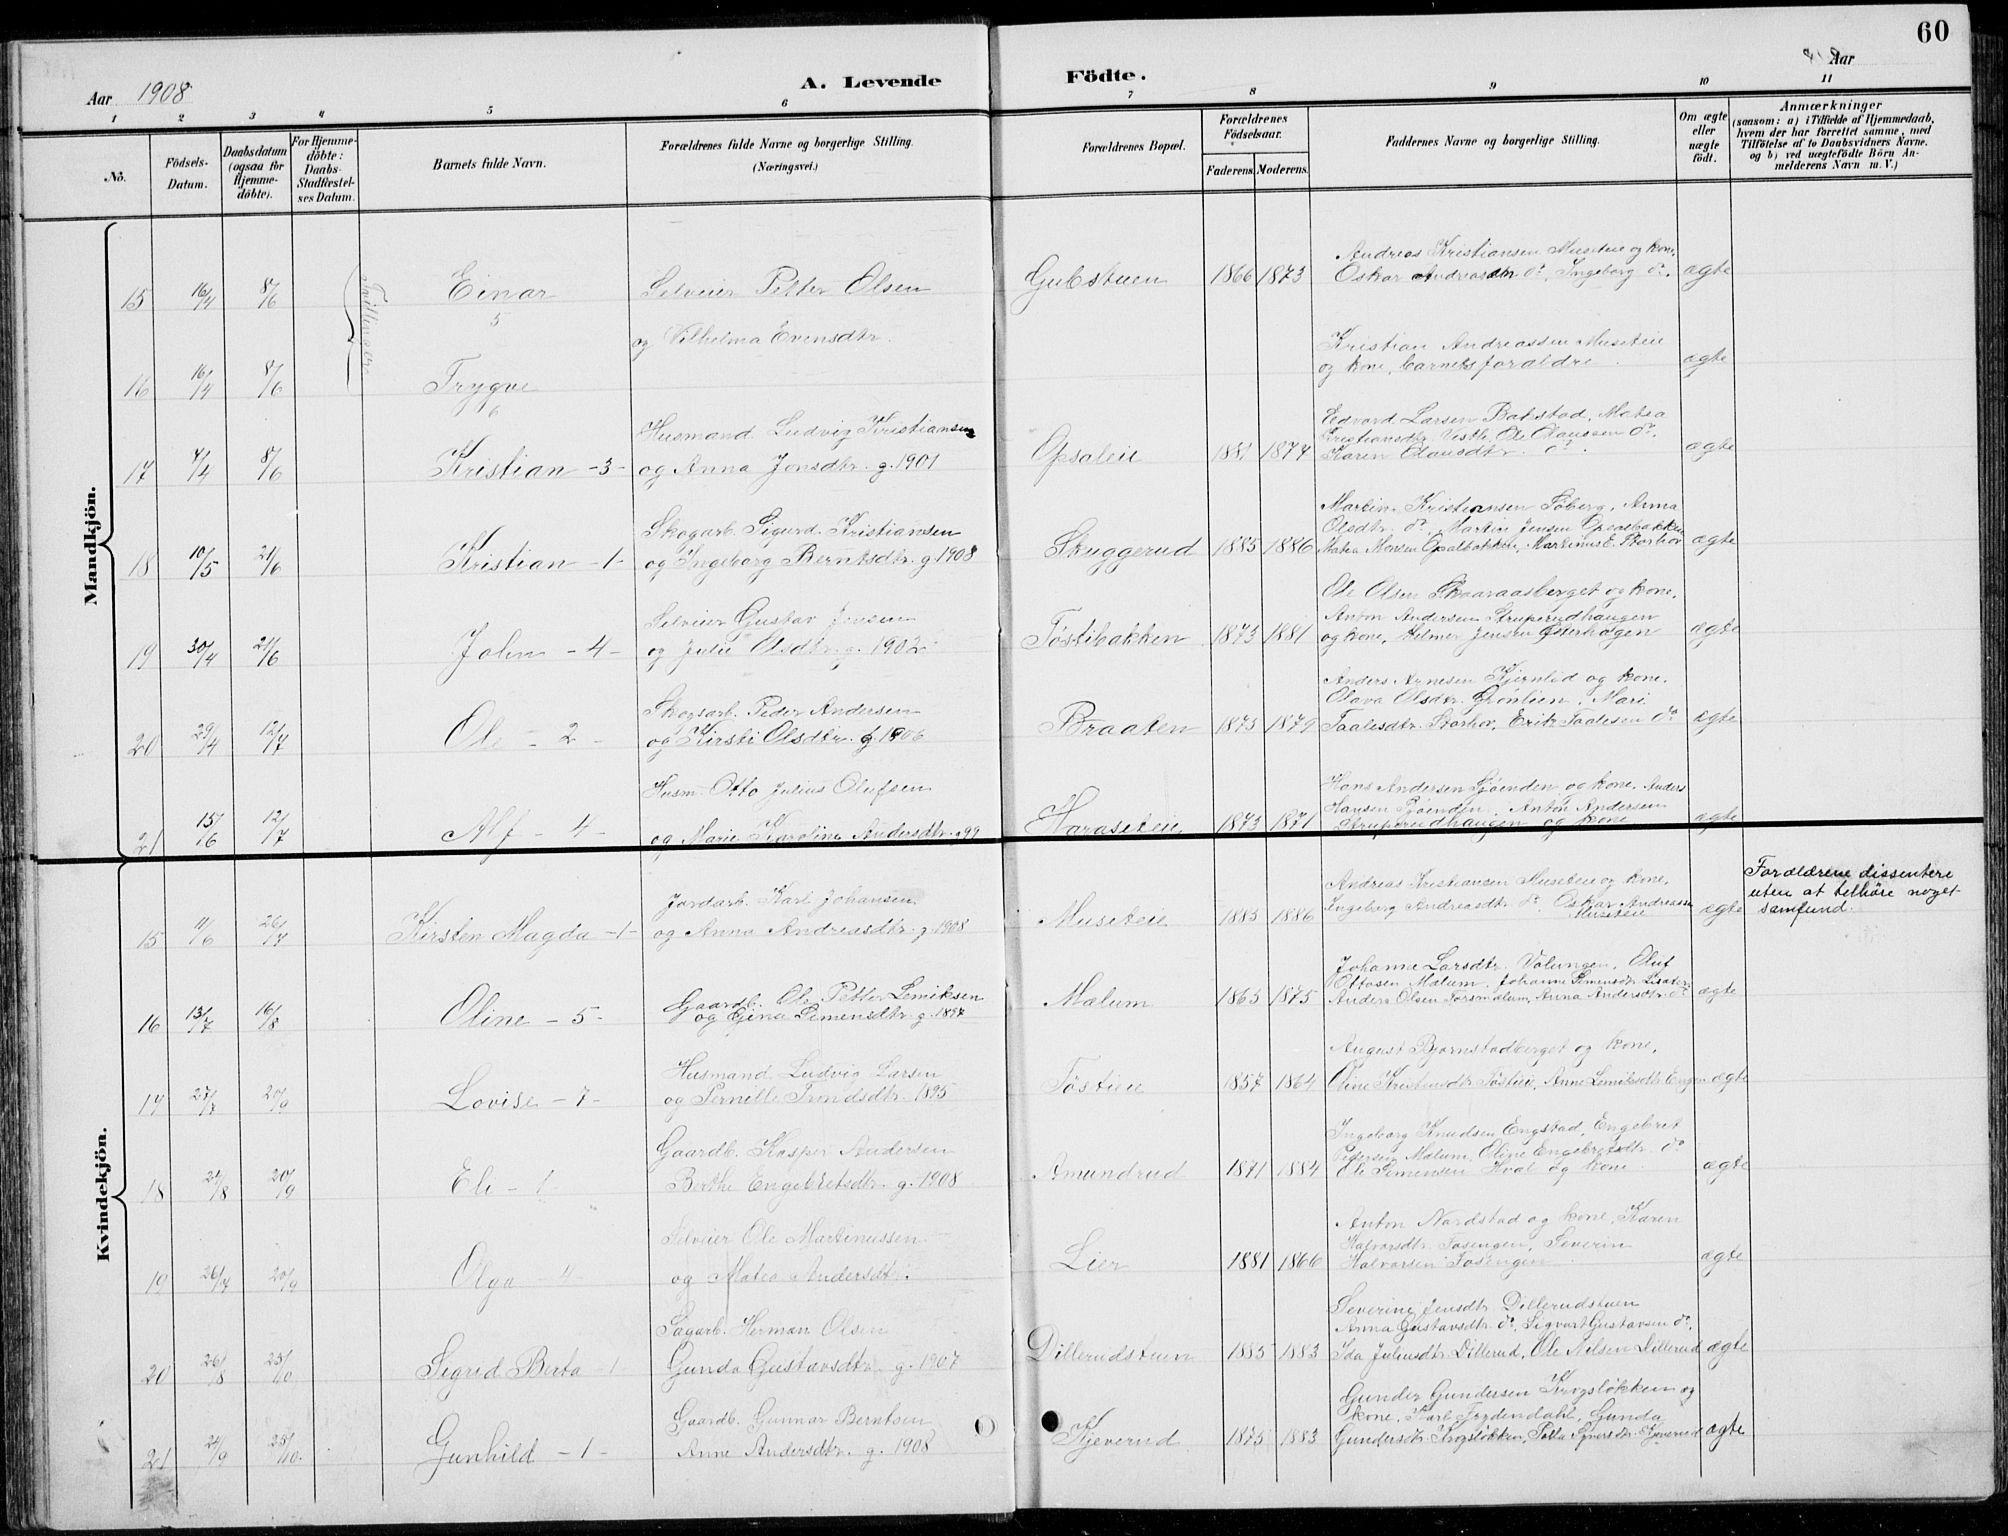 60
Aar 1908
A. Levende
Födte.
Aar
1 2 3 4 5 6 7 8 9 10 11
No.
Födsels-Datum.
Daabsdatum (ogsaa for Hjemme-döbte).
For Hjemme-döbte: Daabs-Stadfæstel-ses Datum.
Barnets fulde Navn.
Forældrenes fulde Navne og borgerlige Stilling.
(Næringsvei.)
Forældrenes Bopæl.
Forældrenes Födselsaar.
Faderens. Moderens.
Faddernes Navne og borgerlige Stilling.
Om ægte eller uægte födt.
Anmærkninger
(saasom: a) i Tilfælde af Hjemmedaab, hvem der har forrettet samme, med Tilföielse af to Daabsvidners Navne. og b) ved uægtefödte Börn Anmelderens Navn m. V.)
Mandkjön.
15 16/4 8/6 Einar 5
Selveier Petter Olsen
og Vilhelma Evensdtr.
Gubstuen 1866 1873
Andreas Kristiansen Museteie og kone,
Oskar Andreassen do, Ingeborg do. ægte
Tvillinger
16 16/4 8/6 Trygve 6
Kristian Andreassen Museteie
og kone, barnets forældre. ægte
17 7/4 8/6 Kristian - 3 -
Husmand Ludvig Kristiansen
og Anna Jonsdtr. g. 1901
Opsaleie 1881 1874
Edvard Larsen Bakstad, Matea
Kristiansdtr. Vestby, Ole Olaussen do.
Karen Olausdtr. do. ægte
18 10/5 21/6 Kristian - 1 -
Skogarb. Sigurd Kristiansen
og Ingeborg Berntsdtr. g. 1908
Skuggerud 1885 1886
Martin Kristiansen Söberg, Anna
Olsdtr. do. Martin Jensen Opsalbakken
Matea Monsen Opsalbakken, Martinus E. Storhov ægte
19 30/4 21/6 John - 4 -
Selveier Gustav Jensen
og Julie Olsdtr. g. 1902
Töstibakken 1873 1881
Ole Olsen Skaaraasberget og kone,
Anton Andersen Struperudhaugen
og kone, Helmer Jensen Österhagen ægte
20 29/4 12/7 Ole - 2 -
Skogsarb. Peder Andersen
og Kirsti Olsdtr. g. 1906
Braaten 1873 1879
Anders Arnesen Kjernlid og kone,
Olava Olsdtr. Grönlien, Mari
Paalesdtr. Storhov, Erik Paalesen do ægte
21 15/6 12/7 Alf - 4 -
Husm. Otto Julius Olufsen
og Marie Karoline Andersdtr. 99
Haraseteie 1873 1871
Hans Andersen Sjöenden og kone, Anders
Hansen Sjöenden, Anton Andersen
Struperudhaugen og kone ægte
Kvindekjön.
15 11/6 26/7 Kirsten Magda - 1 -
Jordarb. Karl Johansen
og Anna Andreasdtr. g. 1908
Museteie 1885 1886
Andreas Kristiansen Museteie og kone,
Ingeborg Andreasdtr. do. Oskar Andreassen
Museteie ægte
Forældrene dissentere
uten at tilhöre noget
samfund.
16 13/7 16/8 Oline - 5 -
Gaardb. Ole Petter Lemiksen
og Gina Simensdtr. g. 1897
Malum 1865 1875
Johanne Larsdtr. Volungen, Oluf
Ottosen Malum, Johanne Simensdtr.
Anders Olsen Torsmalum, Anna Andersdtr. do. ægte
17 27/7 20/9 Lovise - 7 -
Husmand Ludvig Larsen
og Pernille Trondsdtr. 1895
Töstieie 1857 1864
August Bjørnstadberget og kone,
Oline Kristiansdtr. Töstieie, Anne Lemiksdtr. Engen ægte
18 24/8 20/9 Eli - 1
Gaardb. Kasper Andersen
Berthe Engebretsdtr. g. 1908
Amundrud 1871 1884
Ingeborg Knudsen Engstad, Engebret
Pedersen Malum, Oline Engebretsdtr. do
Ole Simensen Hval og kone ægte
19 26/7 20/9 Olga 4
Selveier Ole Martinussen
og Matea Andersdtr.
Lier 1881 1866
Anton Nordstad og kone, Karen
Halvorsdtr. Tosengen, Severin
Halvorsen Tosengen ægte
20 26/8 25/10 Sigrid Berta 1
Sagarb. Herman Olsen
Gunda Gustavsdtr. g. 1907
Dillerudstuen 1885 1883
Severine Jensdtr. Dillerudstuen
Anna Gustavsdtr. do, Sigvart Gustavsen do,
Ida Juliusdtr. Dillerud, Ole Nilsen Dillerud ægte
21 24/9 25/10 Gunhild - 1 -
Gaardb. Gunnar Berntsen
Anne Andersdtr. g. 1908
Kjeverud 1875 1883
Gunder Gundersen Krogsløkken og
kone, Karl Frydendahl, Gunda
Gundersdtr. Krogsløkken, Petra Syversdtr. Kjeverud ægte